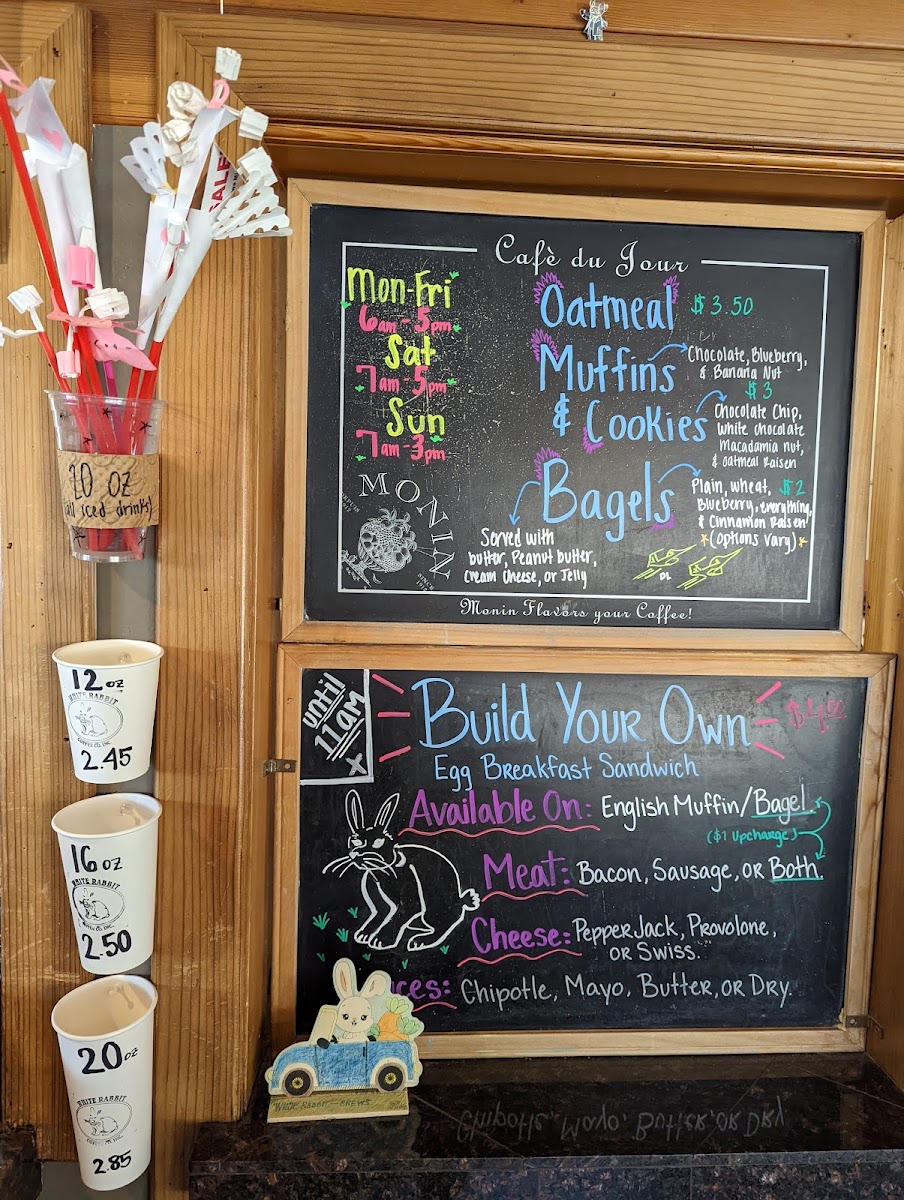 SALE
20 oz
(all iced drinks)
12 oz
WHITE RABBIT
COFFEE CO. INC.
2.45
16 oz
WHITE RABBIT
COFFEE CO. INC.
2.50
20 oz
WHITE RABBIT
COFFEE CO. INC.
2.85
Cafè du Jour
Mon-Fri
6am-5pm
Sat
7am-5pm
Sun
7am-3pm
MONIN
Oatmeal $3.50
Muffins
Chocolate, Blueberry,
& Banana Nut
$3
& Cookies
Chocolate Chip,
White Chocolate
Macadamia nut,
& Oatmeal Raisen
Bagels
Plain, Wheat, $2
Blueberry, everything,
& Cinnamon Raisen
*(options vary)*
Served with
butter, Peanut butter,
Cream Cheese, or Jelly
DL
Monin Flavors your Coffee!
until
11am
x
Build Your Own
Egg Breakfast Sandwich
Available On: English Muffin/Bagel.
($1 Upcharge)
Meat: Bacon, Sausage, or Both.
Cheese: PepperJack, Provolone,
or Swiss.
ces: Chipotle, Mayo, Butter, or Dry.